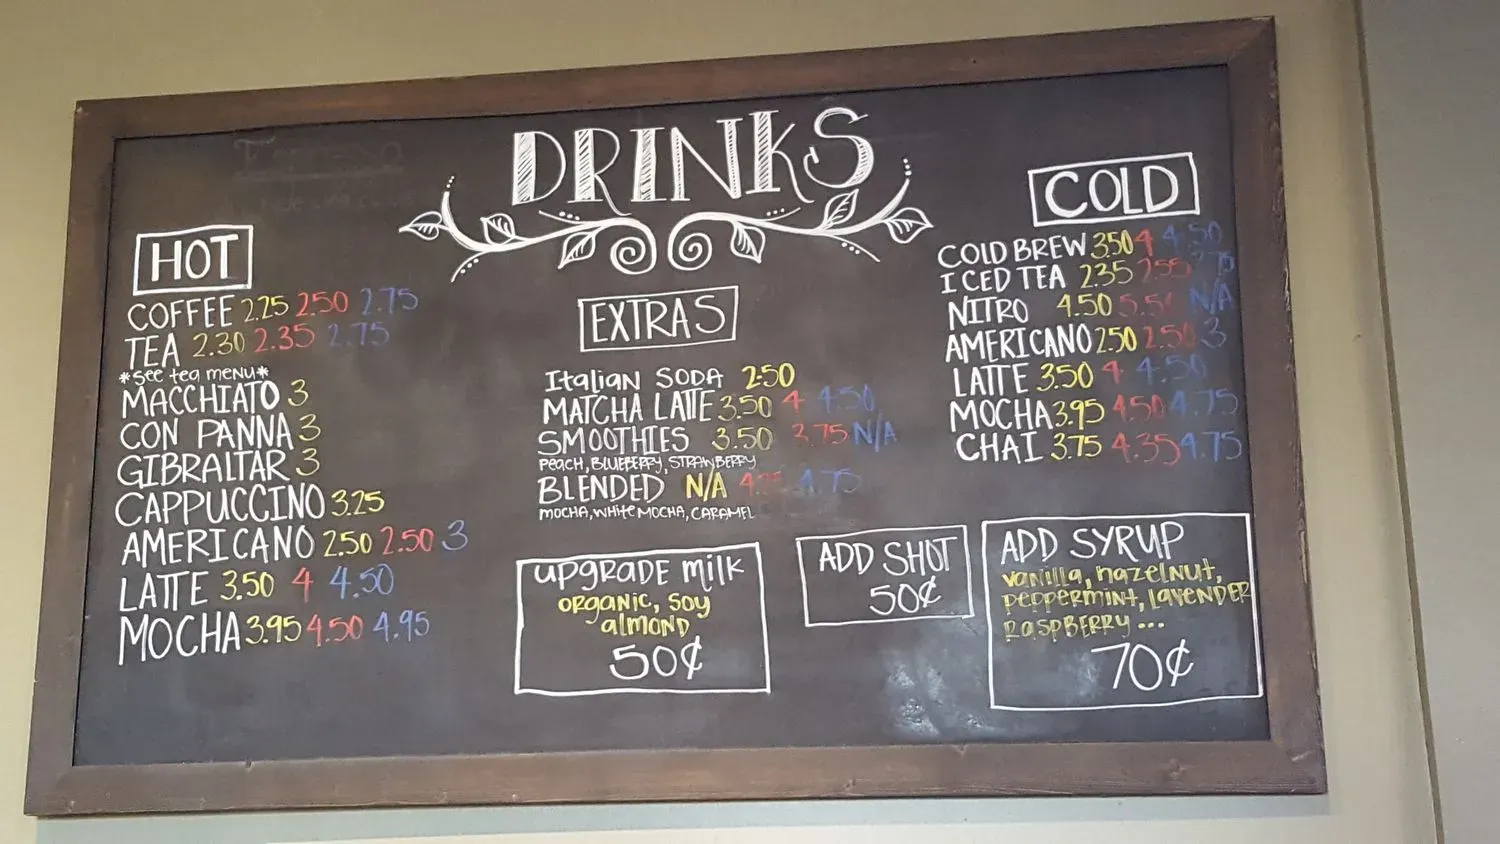 DRINKS
HOT
COFFEE 2.25 2.50 2.75
TEA 2.30 2.35 2.75
*see tea menu*
MACCHIATO 3
CON PANNA 3
GIBRALTAR 3
CAPPUCCINO 3.25
AMERICANO 2.50 2.50 3
LATTE 3.50 4 4.50
MOCHA 3.95 4.50 4.95
EXTRAS
Italian SODA 2.50
MATCHA LATTE 3.50 4 4.50
SMOOTHIES 3.50 3.75 N/A
PEACH, BLUEBERRY, STRAWBERRY
BLENDED N/A 4.75
MOCHA, WHITE MOCHA, CARAMEL
upgrade milk
organic, soy
almond
50¢
COLD
COLD BREW 3.50 4 4.50
ICED TEA 2.35 2.55 2.75
NITRO 4.50 5.50 N/A
AMERICANO 2.50 2.50 3
LATTE 3.50 4 4.50
MOCHA 3.95 4.50 4.75
CHAI 3.75 4.35 4.75
ADD SHOT
50¢
ADD SYRUP
vanilla, hazelnut,
peppermint, lavender
raspberry...
70¢